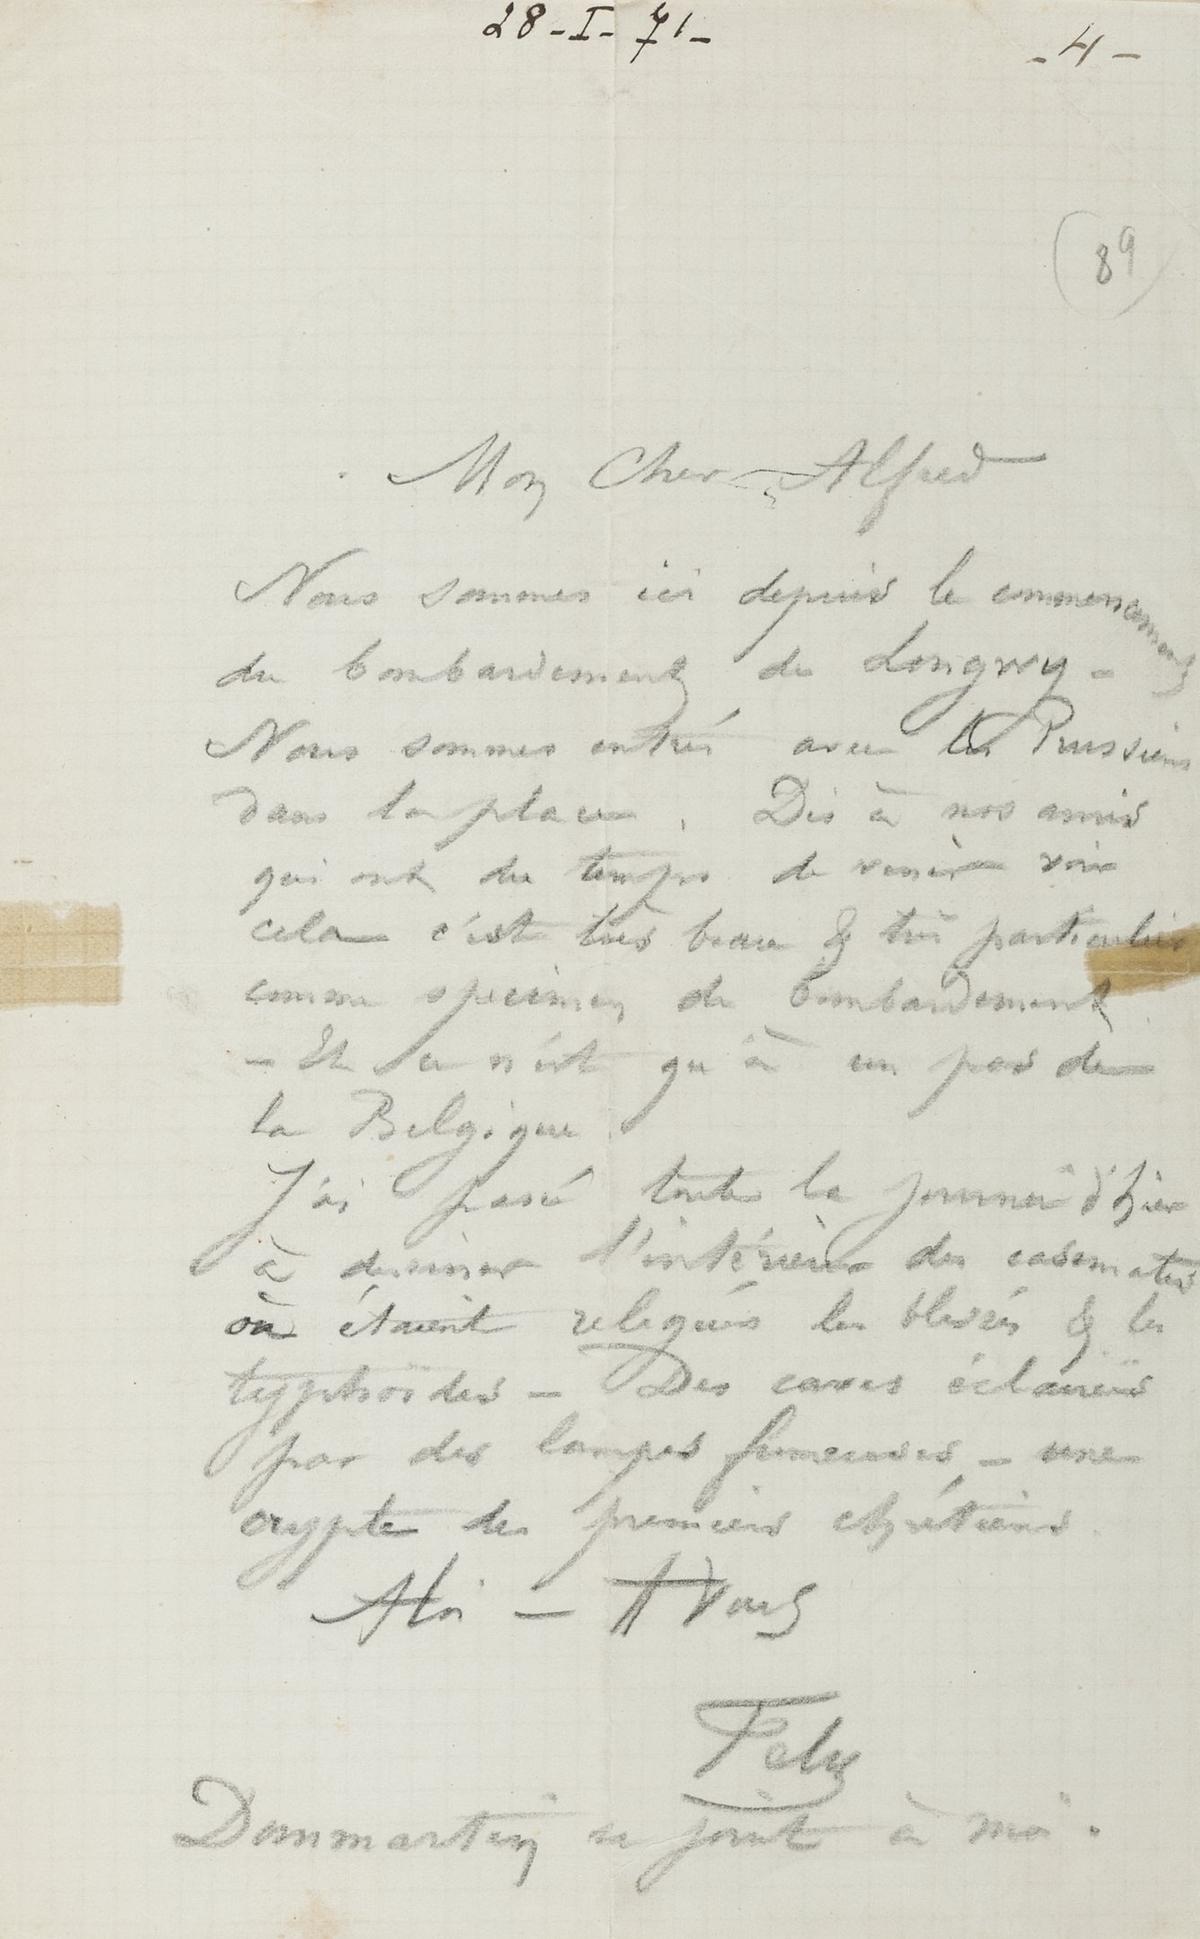 28-I-71-
-4-
(89)
Mon Cher Alfred
Nous sommes ici depuis le commencement
du bombardement de Longwy -
Nous sommes entrés avec les Prussiens
dans la place. Dis à nos amis
qui ont du temps de venir voir
cela c'est très beau & très particulier
comme specimen de bombardement
- Et ce n'est qu'à un pas de
la Belgique.
J'ai passé toute la journée d'hier
à dessiner l'intérieur des casemates
où étaient relegués les blessés & les
typhoïdes - Des caves éclairées
par des lampes fumeuses - une
crypte des premiers chrétiens.
A toi - A Vous
Fely
Dommartin se joint à moi.